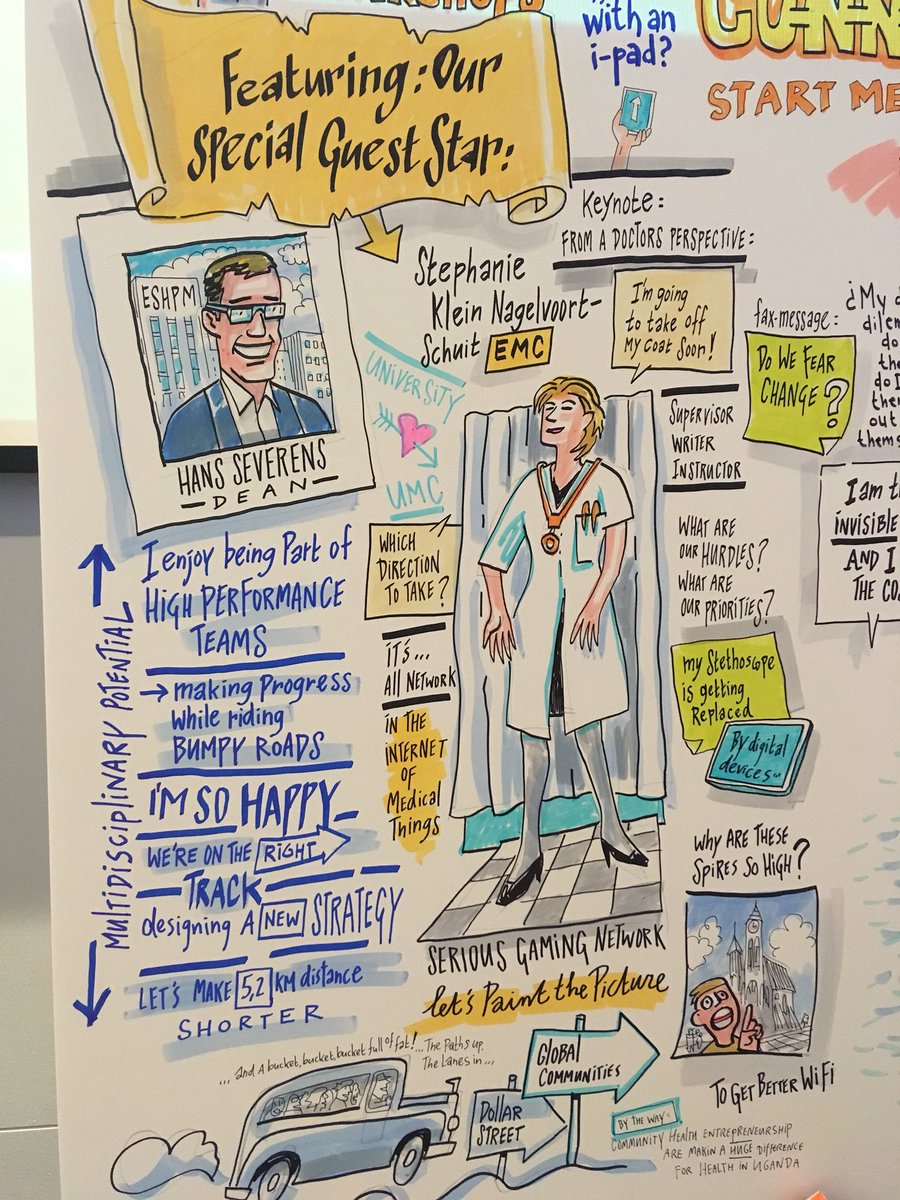 with an
i-pad?
START ME
Featuring: Our
Special Guest Star:
Keynote:
FROM A DOCTORS PERSPECTIVE:
ESHPM
HANS SEVERENS
DEAN
Stephanie
Klein Nagelvoort-
Schuit EMC
UNIVERSITY
UMC
I'm going
to take off
my coat soon!
fax-message:
DO WE FEAR
CHANGE?
¿My
do
SUPERVISOR
WRITER
INSTRUCTOR
I am
INVISIBLE
AND I
WHICH
DIRECTION
TO TAKE?
IT'S...
All NETWORK
IN THE
INTERNET
OF
Medical
Things
WHAT ARE
OUR HURDLES?
WHAT ARE
OUR PRIORITIES?
my Stethoscope
is getting
Replaced
By digital
devices
MULTIDISCIPLINARY POTENTIAL
I enjoy being Part of
HIGH PERFORMANCE
TEAMS
→ making Progress
while riding
BUMPY ROADS
I'M SO HAPPY
WE'RE ON THE RIGHT
TRACK
designing A NEW STRATEGY
LET'S MAKE 5,2 KM distance
SHORTER
SERIOUS GAMING NETWORK
let's Paint the Picture
WHY ARE THESE
SPIRES SO HIGH?
TO GET BETTER WIFI
... and A bucket, bucket, bucket full of fat! ... The Paths up,
The Lanes in...
DOLLAR
STREET
GLOBAL
COMMUNITIES
BY THE WAY:
COMMUNITY HEALTH ENTREPRENEURSHIP
ARE MAKIN A HUGE DIFFERENCE
FOR HEALTH IN UGANDA